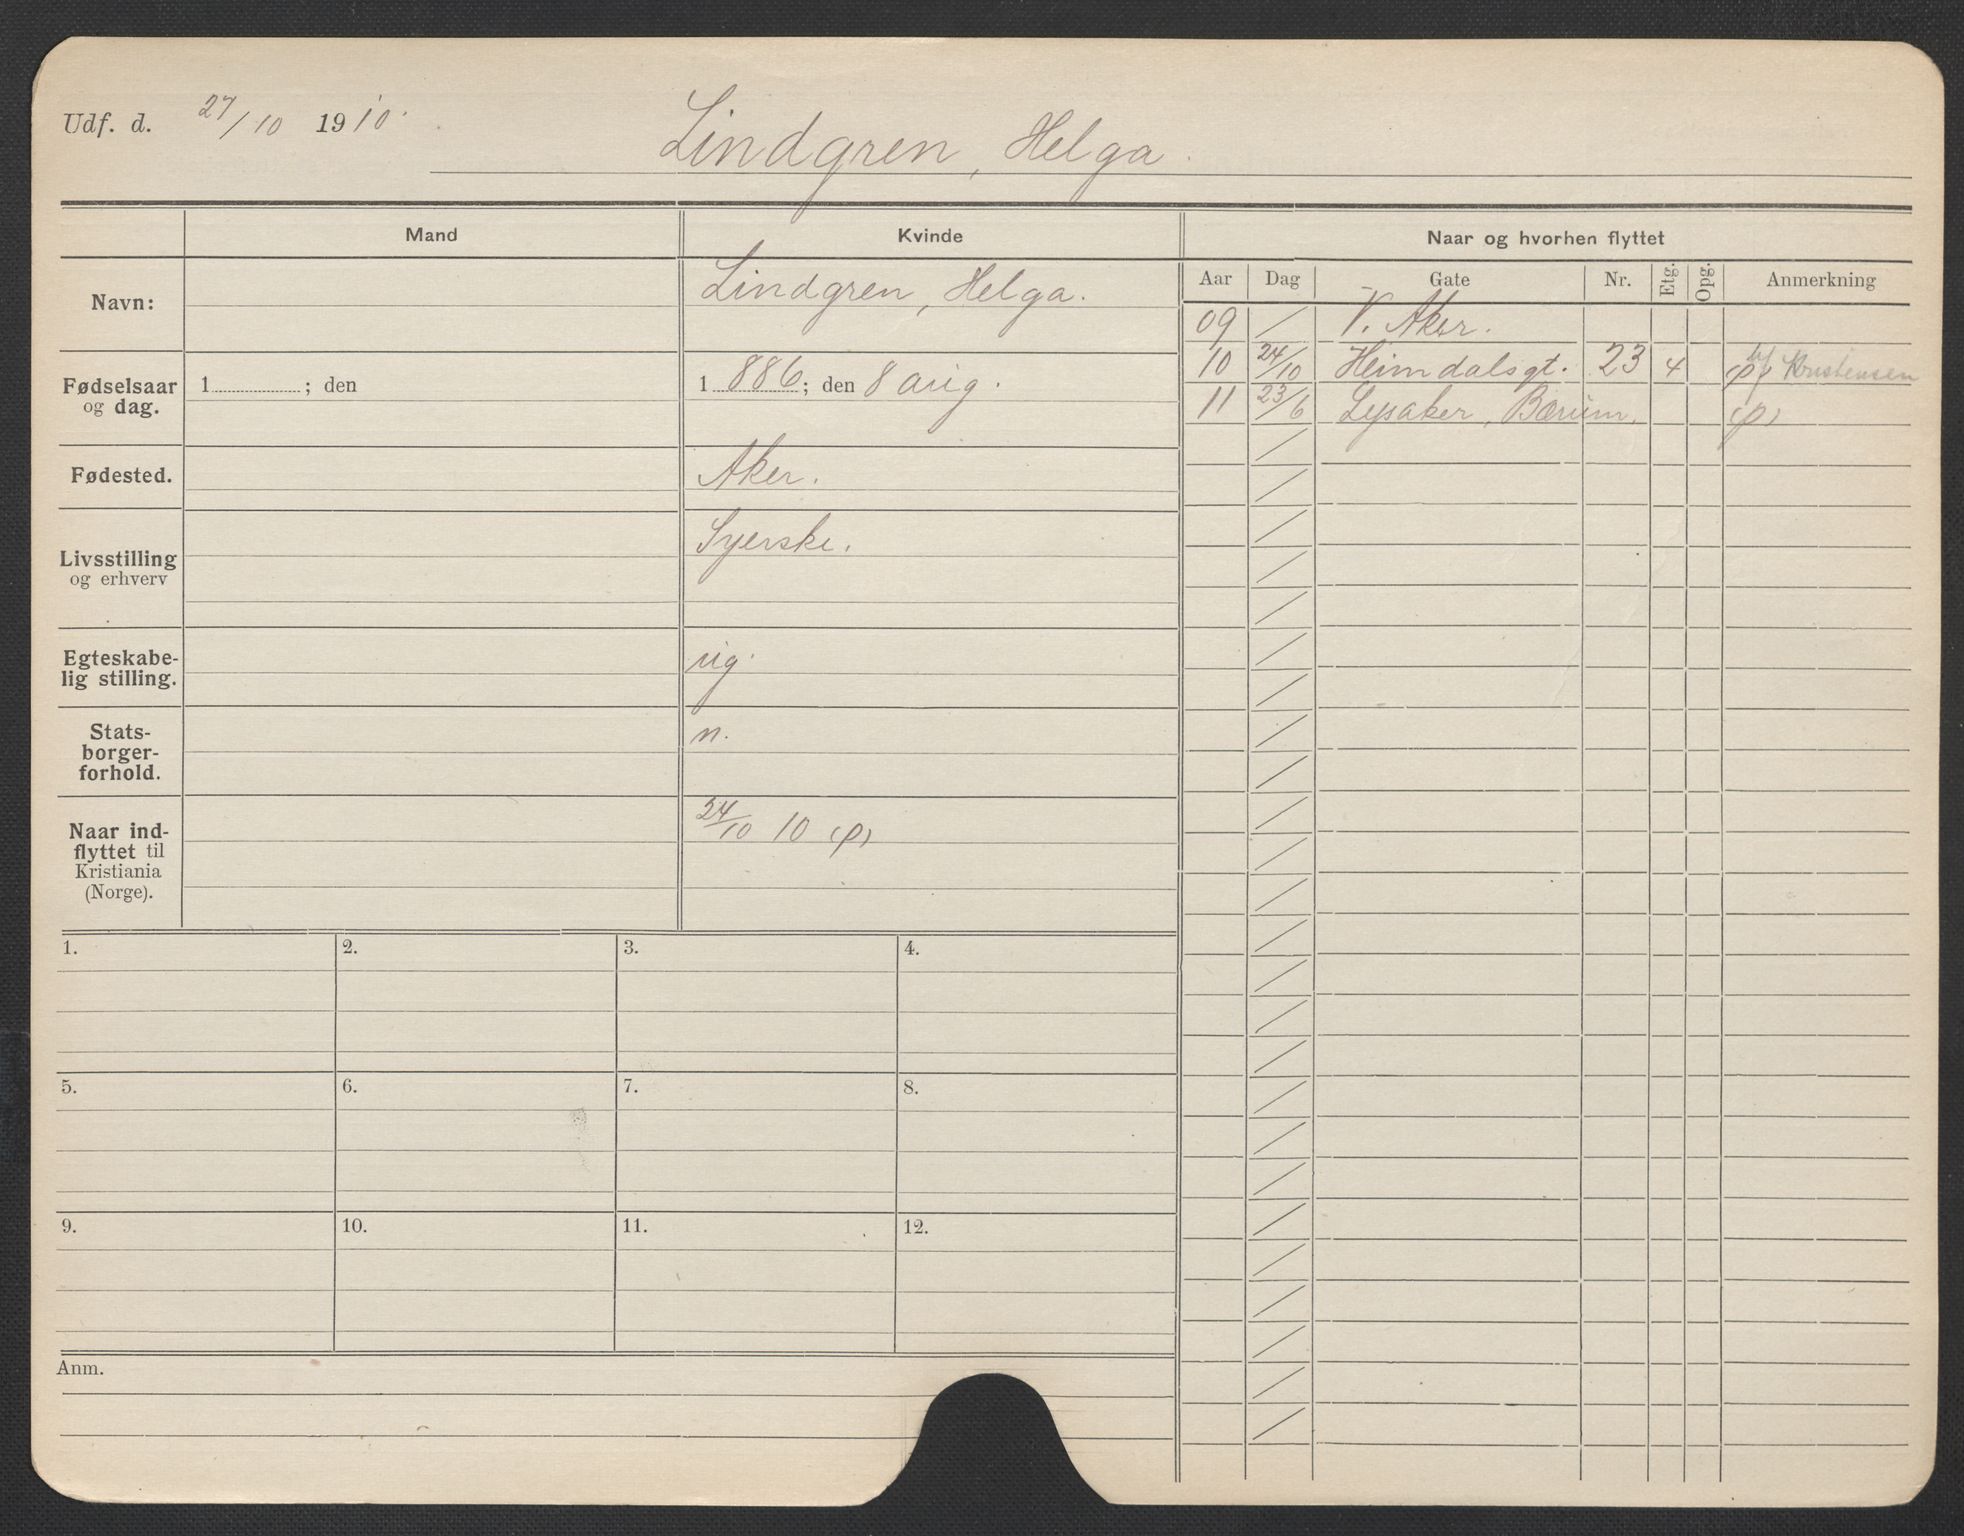 Udf. d. 27/10 1910.
Lindgren, Helga.
Mand
Kvinde
Naar og hvorhen flyttet
Navn:
Lindgren, Helga.
Fødselsaar
og dag.
1 ; den
1 886 ; den 8 aug.
Fødested.
Aker.
Livsstilling
og erhverv
Syerske.
Egteskabe-
lig stilling.
ug.
Stats-
borger-
forhold.
n.
Naar ind-
flyttet til
Kristiania
(Norge).
24/10 10 (p)
Aar Dag Gate Nr. Etg. Opg. Anmerkning
09 / V. Aker.
10 24/10 Heimdalsgt. 23 4 (p) Kristensen
11 23/6 Lysaker, Bærum. (p)
1. 2. 3. 4.
5. 6. 7. 8.
9. 10. 11. 12.
Anm.